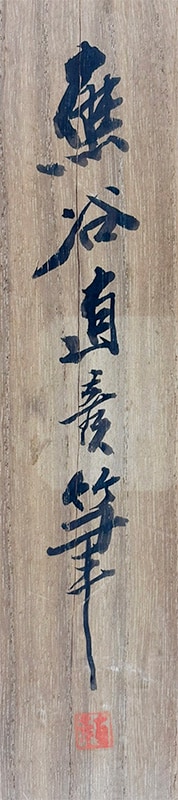 熊谷直彦筆